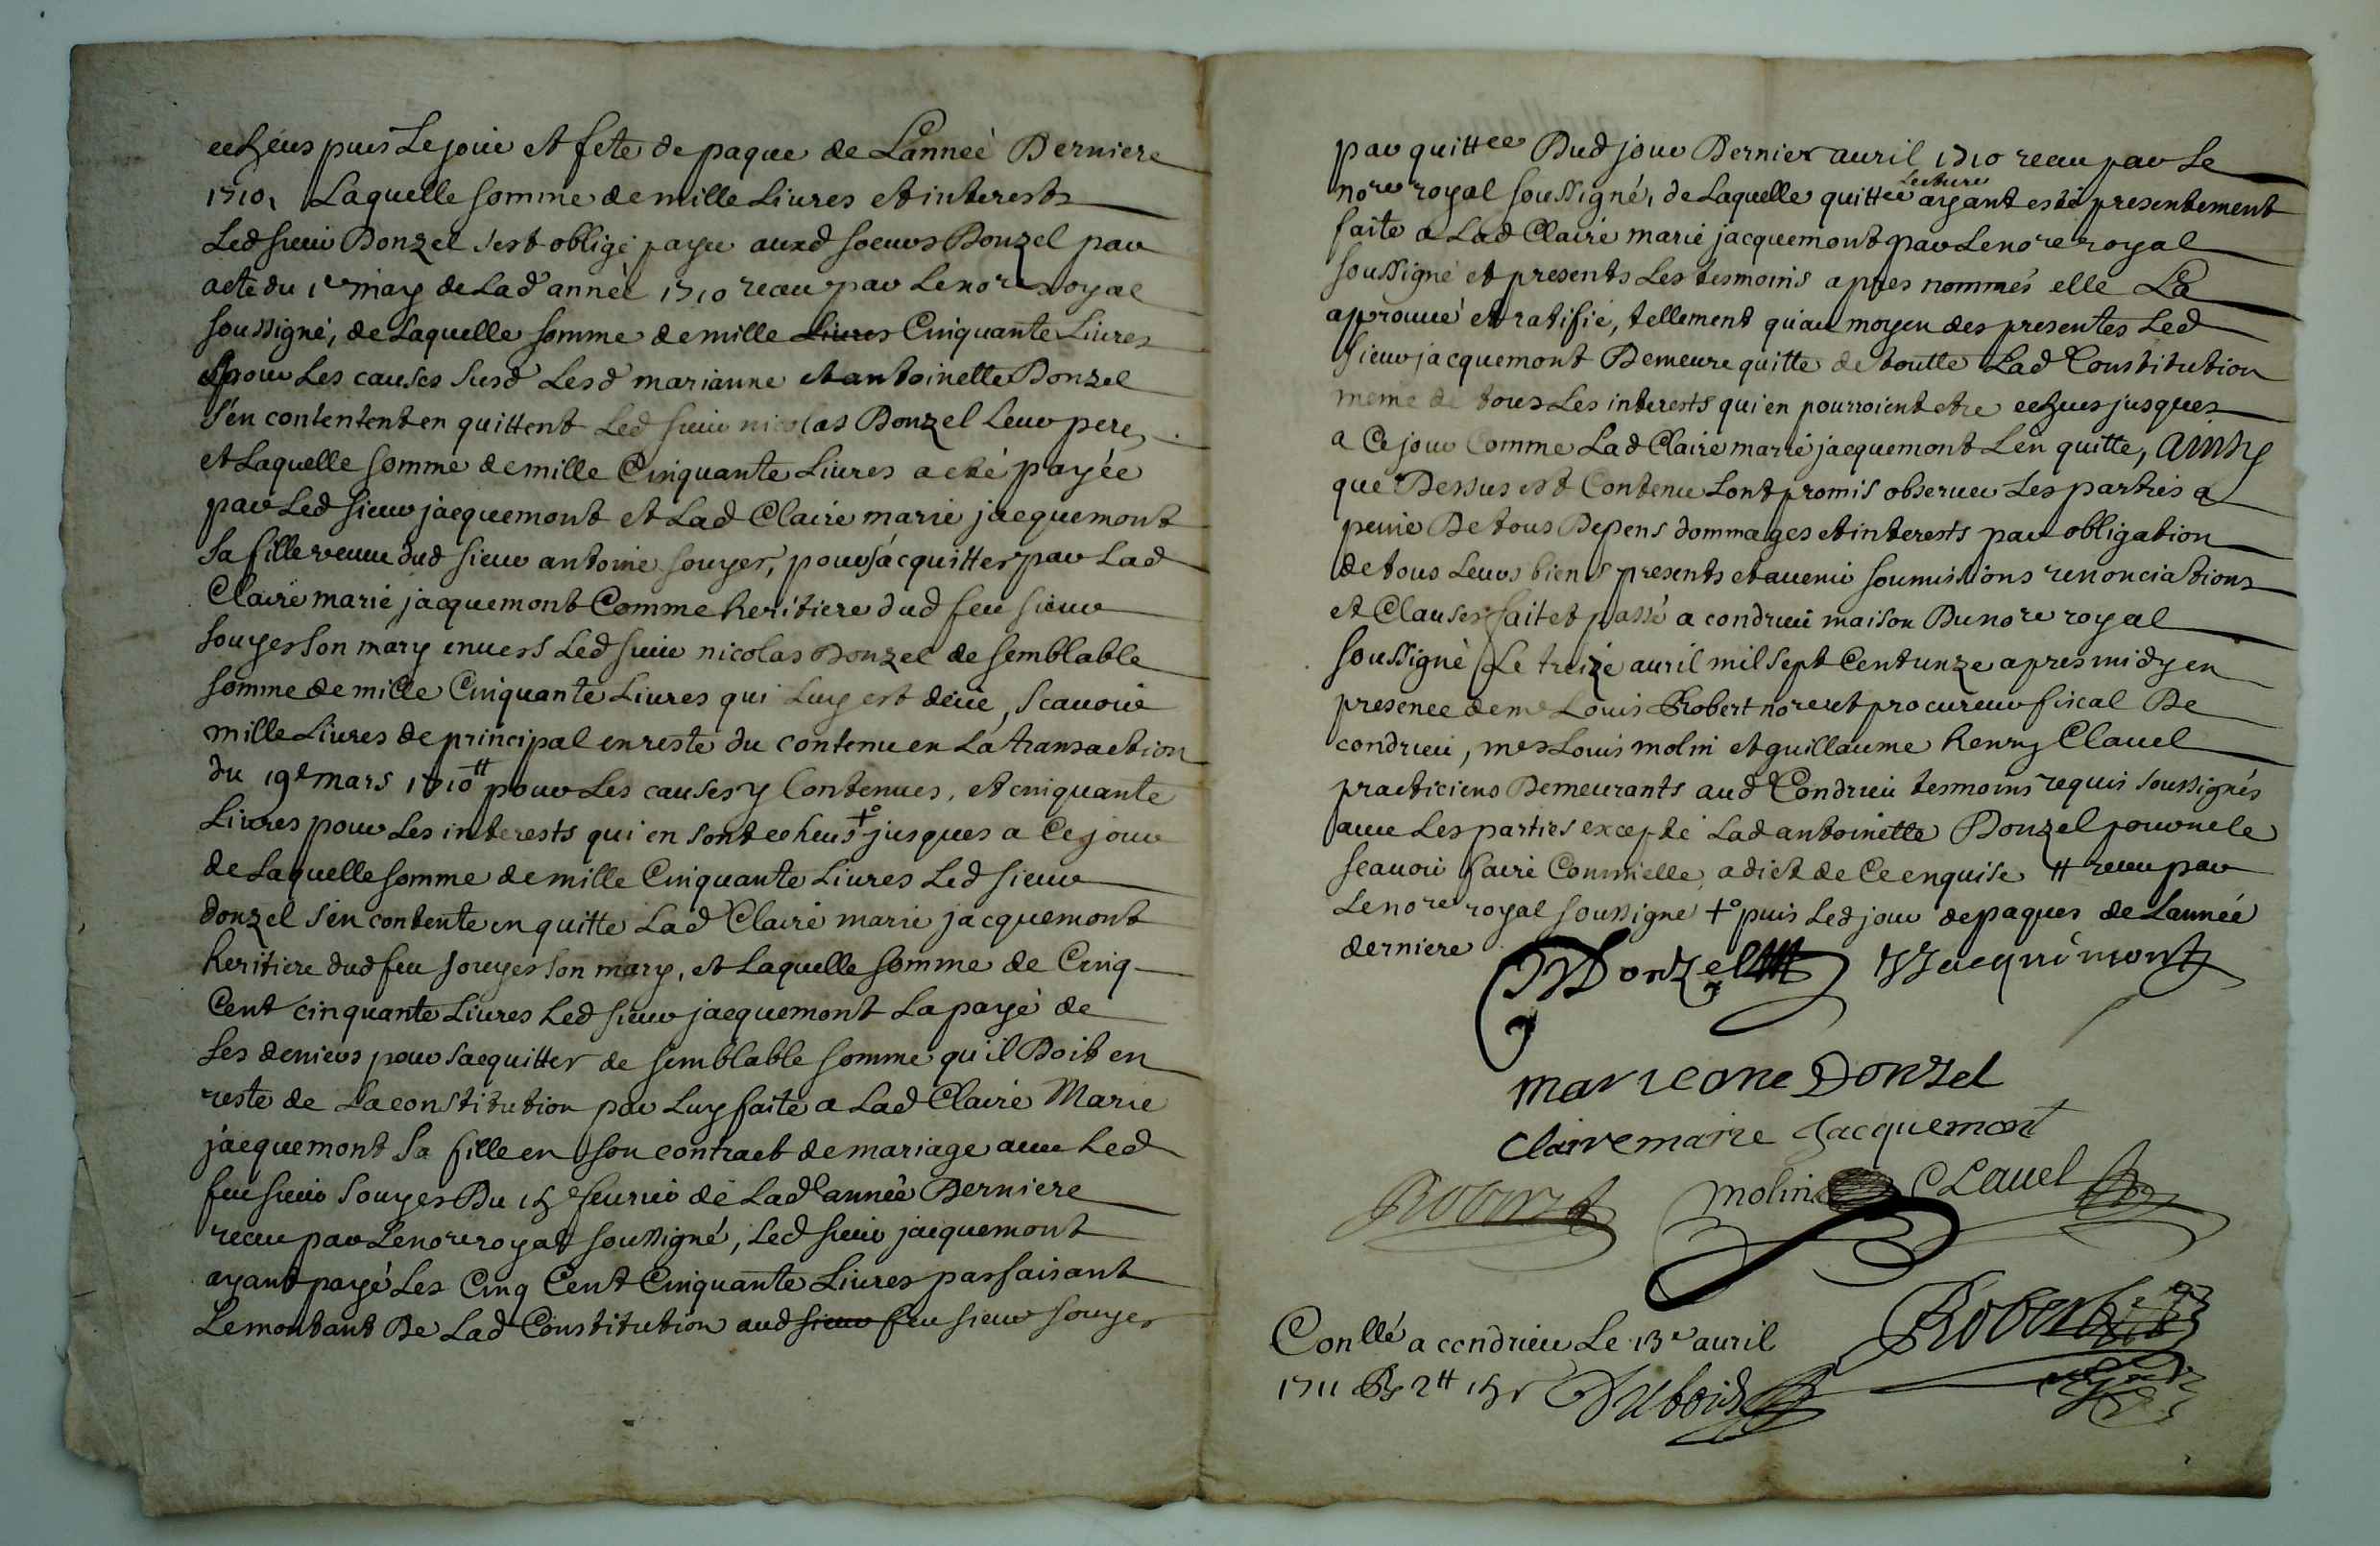 echeus puis Le jour et fete de paque de Lanneé Derniere
1710, Laquelle somme de mille Livres et interests
Led sieur Donzel s'est obligé payer auxd soeurs Donzel par
acte du 1er may de Lad année 1710 receu par Le nore royal
soussigné, de Laquelle somme de mille Livres Cinquante Livres
pour Les causes susd Lesd marianne et antoinette Donzel
s'en contentent en quittent Led sieur nicolas Donzel Leur pere,
et Laquelle somme de mille Cinquante Livres a eté payée
par Led sieur jacquemont et Lad Claire marie jacquemont
sa fille veuve dud sieur antoine souyer, pour s'acquitter par Lad
Claire marie jacquemont Comme heritiere dud feu sieur
souyer son mary envers Led sieur nicolas Donzel de semblable
somme de mille Cinquante Livres qui Luy est deüe, scavoir
mille Livres de principal en reste du contenu en La transaction
du 19e mars 1710 # pour Les causes y Contenues, et cinquante
Livres pour Les interests qui en sont echeus +° jusques a Ce jour
de Laquelle somme de mille Cinquante Livres Led sieur
donzel s'en contente en quitte Lad Claire marie jacquemont
heritiere dud feu souyer son mary, et Laquelle somme de Cinq
Cent cinquante Livres Led sieur jacquemont La payé de
ses deniers pour s'acquitter de semblable somme qu'il Doit en
reste de La constitution par Luy faite a Lad Claire Marie
jacquemont sa fille en son contract de mariage avec Led
feu sieur souyer Du 15e feurier de Lad année Derniere
receu par Le nore royal soussigné, Led sieur jacquemont
ayant payé Les Cinq Cent Cinquante Livres parfaisant
Le montant De Lad Constitution aud sieur feu sieur souyer
par quittce Dud jour Dernier auril 1710 receu par Le
nore royal soussigné, de Laquelle quittce Lecture ayant esté presentement
faite a Lad Claire marie jacquemont par Le nore royal
soussigné et presents Les tesmoins apres nommés elle La
aprouué et ratifié, tellement qu'au moyen des presentes Led
sieur jacquemont Demeure quitte de toutte Lad Constitution
meme de tous Les interests qui en pourroient etre echeus jusques
a Ce jour Comme Lad Claire marie jacquemont L'en quitte, Ainsy
que Dessus est Contenu Lont promis obseruer Les parties a
peine De tous Depens dommages et interests par obligation
de tous Leurs biens presents et auenir soumissions renonciations
et Clauses fait et passé a condrieu maison Du nore royal
soussigné Le treize auril mil sept Cent unze apres midy en
presence de me Louis Robert nore et procureur fiscal De
condrieu, mes Louis molin et guillaume henry Clauel
practiciens Demeurants aud Condrieu tesmoins requis soussignés
auec Les parties excepté Lad antoinette Donzel pour ne le
scauoir faire Comme elle a dict de Ce enquise # receu par
Le nore royal soussigné +° puis Led jour de paques de Lannée
derniere
Donzel Jacquemont
marieane Donzel
Claire marie Jacquemont
Robert molin CLauel
Conllé a condrieu Le 13e auril
1711 Rs 2# 15s Dubois
Robert